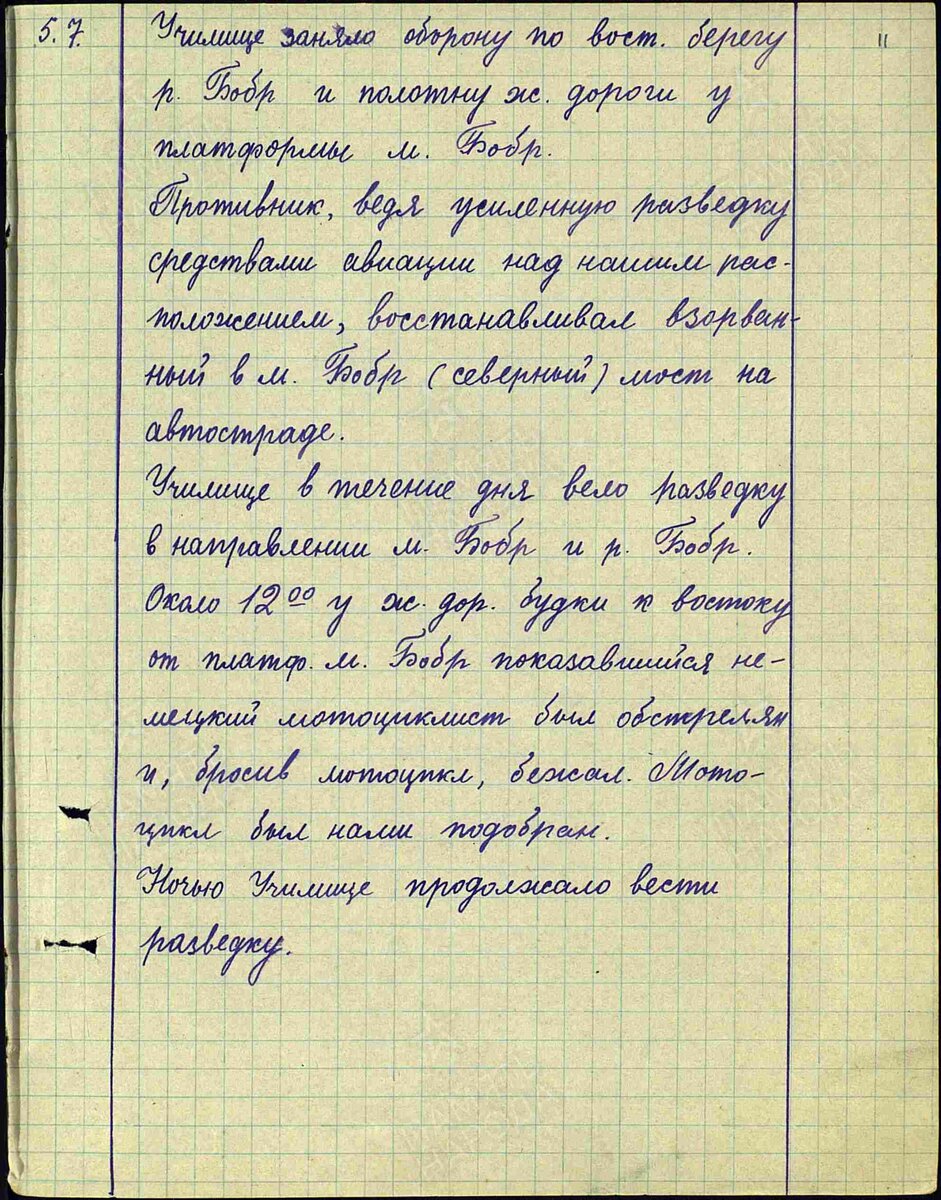 5.7. Училище заняло оборону по вост. берегу 11
р. Бобр и полотну ж. дороги у
платформы м. Бобр.
Противник, ведя усиленную разведку
средствами авиации над нашим рас-
положением, восстанавливал взорван-
ный в м. Бобр (северный) мост на
автостраде.
Училище в течение дня вело разведку
в направлении м. Бобр и р. Бобр.
Около 12 00 у ж. дор. будки к востоку
от платф. м. Бобр показавшийся не-
мецкий мотоциклист был обстрелян
и, бросив мотоцикл, бежал. Мото-
цикл был нами подобран.
Ночью Училище продолжало вести
разведку.